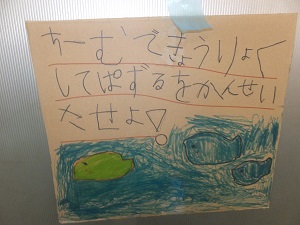 ちーむできょうりょく
してぱずるをかんせい
させよ!